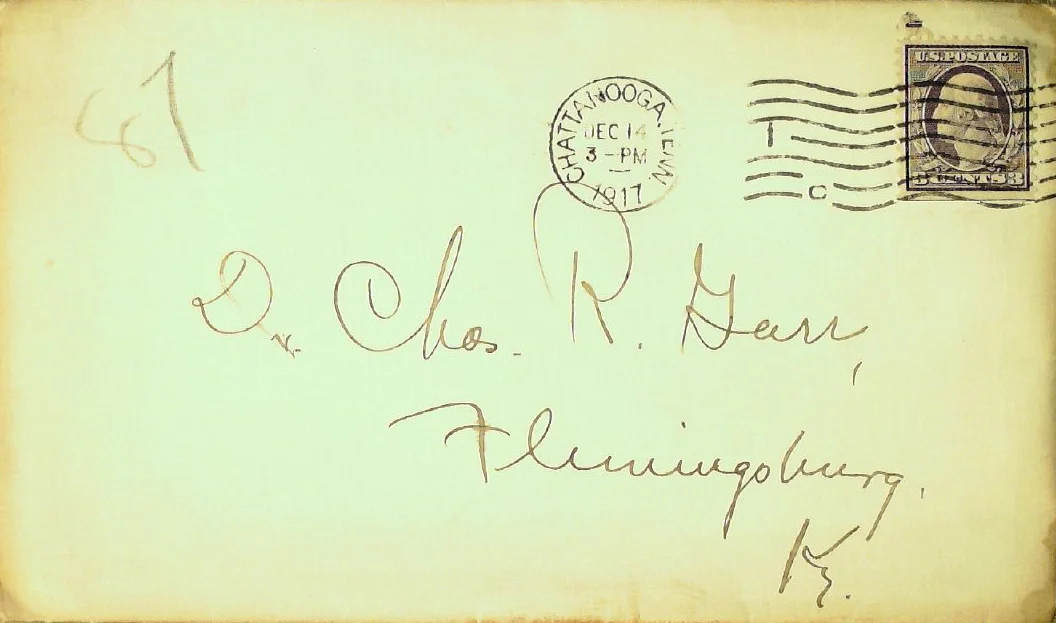 87
U.S. POSTAGE
CHATTANOOGA, TENN
DEC 14
3-PM
1917
1
C
3 CENTS 3
Dr. Chas. R. Garr,
Flemingsburg,
Ky.